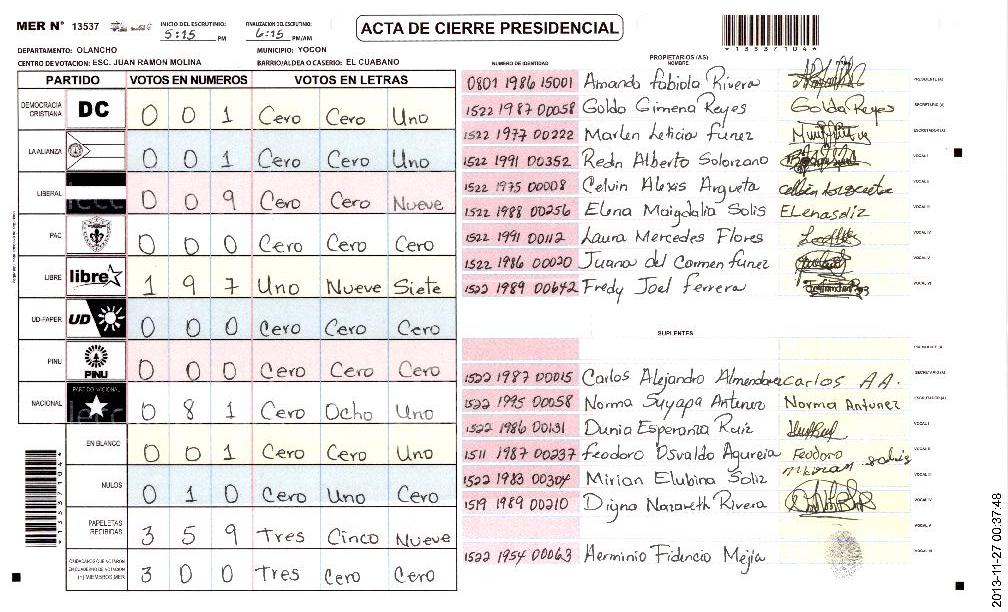 MER N° 13537
INICIO DEL ESCRUTINIO: 5:15 PM
FINALIZACION DEL ESCRUTINIO: 6:15 PM/AM
ACTA DE CIERRE PRESIDENCIAL
13537104
DEPARTAMENTO: OLANCHO
MUNICIPIO: YOCON
CENTRO DE VOTACION: ESC. JUAN RAMON MOLINA
BARRIO/ALDEA O CASERIO: EL CUABANO
PARTIDO VOTOS EN NUMEROS VOTOS EN LETRAS
DEMOCRACIA CRISTIANA DC 0 0 1 Cero Cero Uno
LA ALIANZA 0 0 1 Cero Cero Uno
LIBERAL 0 0 9 Cero Cero Nueve
PAC 0 0 0 Cero Cero Cero
LIBRE libre 1 9 7 Uno Nueve Siete
UD-FAPER UD 0 0 0 Cero Cero Cero
PINU PINU 0 0 0 Cero Cero Cero
NACIONAL PARTIDO NACIONAL 0 8 1 Cero Ocho Uno
EN BLANCO 0 0 1 Cero Cero Uno
NULOS 0 1 0 Cero Uno Cero
PAPELETAS RECIBIDAS 3 5 9 Tres Cinco Nueve
CIUDADANOS QUE VOTARON EN CUADERNO DE VOTACION (+) MIEMBROS MER 3 0 0 Tres Cero Cero
NUMERO DE IDENTIDAD
PROPIETARIOS (AS)
NOMBRE
0801 1986 15001 Amanda fabiola Rivera PRESIDENTE (A)
1522 1987 00058 Goldo Gimena Reyes Golda Reyes SECRETARIO (A)
1522 1977 00222 Marlen Leticia funez ESCRUTADOR (A)
1522 1991 00352 Redn Alberto Solorzano VOCAL I
1522 1975 00008 Celvin Alexis Argueta VOCAL II
1522 1988 00256 Elena Maigdalia Solis VOCAL III
1522 1991 00112 Laura Mercedes Flores VOCAL IV
1522 1986 00020 Juana del Carmen funez VOCAL V
1522 1989 00642 Fredy Joel ferrera VOCAL VI
SUPLENTES
PRESIDENTE (A)
1522 1987 00015 Carlos Alejandro Almendare carlos AA. SECRETARIO (A)
1522 1995 00058 Norma Suyapa Antunez Norma Antunez ESCRUTADOR (A)
1522 1986 00131 Dunia Esperanza Ruiz VOCAL I
1511 1987 00237 feodoro Osvaldo Agureia Feodoro VOCAL II
1522 1983 00304 Mirian Elubina Soliz VOCAL III
1519 1989 00210 Digna Nazareth Rivera VOCAL IV
VOCAL V
1522 1954 00063 Herminio Fidencio Mejia VOCAL VI
13537104
2013-11-27 00:37:48